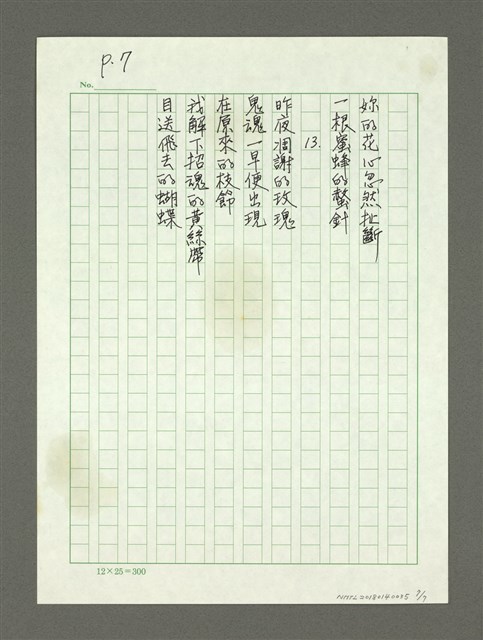 p.7
No.
妳的花心忽然扯斷
一根蜜蜂的螫針
13.
昨夜凋謝的玫瑰
鬼魂一早便出現
在原來的枝節
我解下招魂的黃絲帶
目送飛去的蝴蝶
12×25=300
NMTL20180140035 7/7